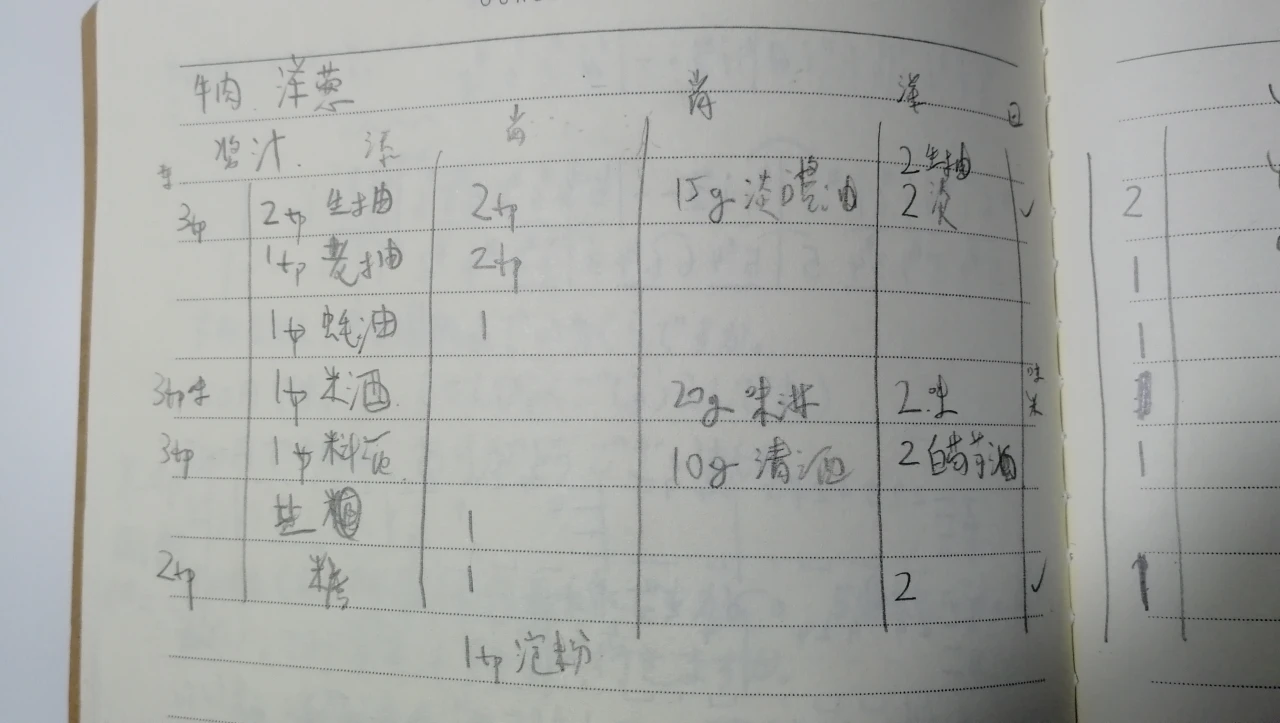 牛肉 洋葱
酱汁
日
2生抽
3tp 2tp 生抽 2tp 15g 淡酱油 2 ✓ 2
1tp 老抽 2tp 1
1tp 蚝油 1 1
3tp味 1tp 米酒 20g 味淋 2味 味米
3tp 1tp 料酒 10g 清酒 2白葡萄酒 1
盐 1
2tp 糖 1 2 ✓ 1
1tp 淀粉